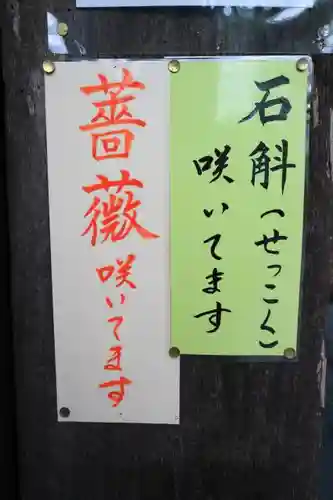 石斛(せっこく)
咲いてます
薔薇咲いてます